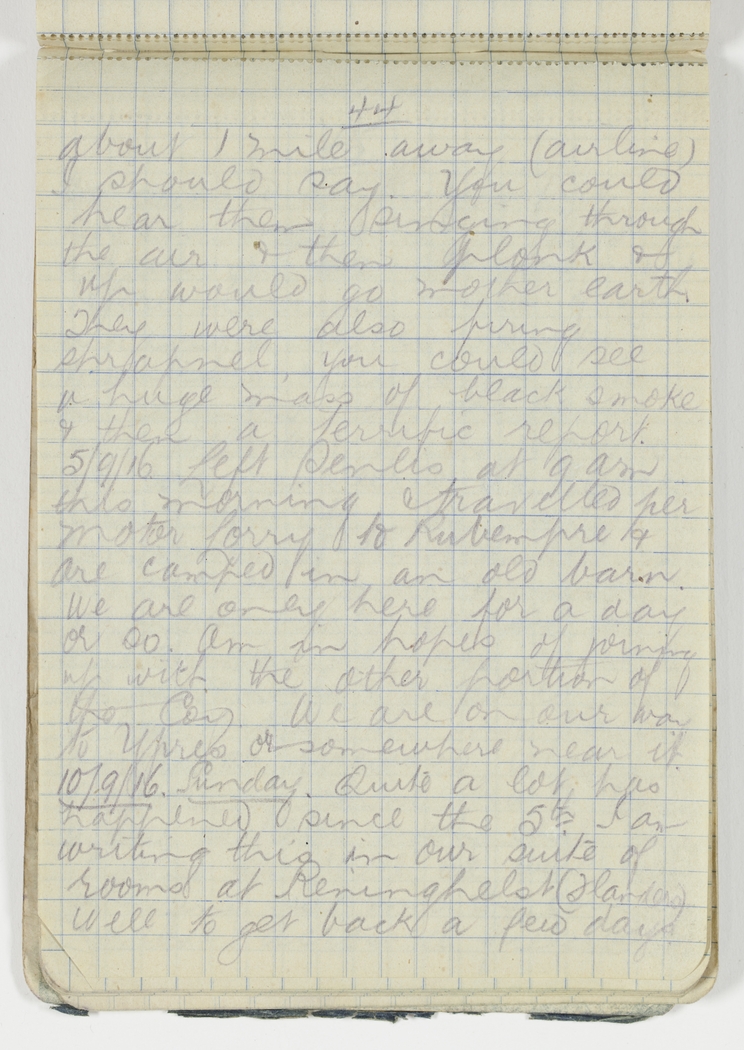 44
about 1 mile away (airline)
I should say. You could
hear them singing through
the air & then plonk &
up would go mother earth.
They were also firing
shrapnel, you could see
a huge mass of black smoke
& then a terrific report.
5/9/16 Left Senlis at 9 am
this morning & travelled per
motor lorry to Rubempre &
are camped in an old barn.
We are only here for a day
or so. Am in hopes of joining
up with the other portion of
the Coy. We are on our way
to Ypres or somewhere near it.
10/9/16. Sunday. Quite a lot has
happened since the 5th I am
writing this in our suite of
rooms at Reninghelst (Flanders)
Well to get back a few days